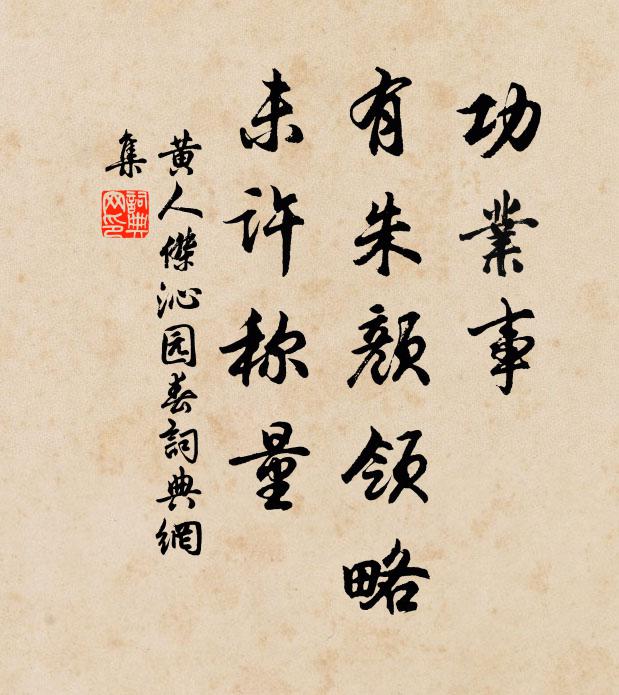 功業事
有朱顏領略
未许称量
黄人傑沁园春詞典網
集
詞典
网印